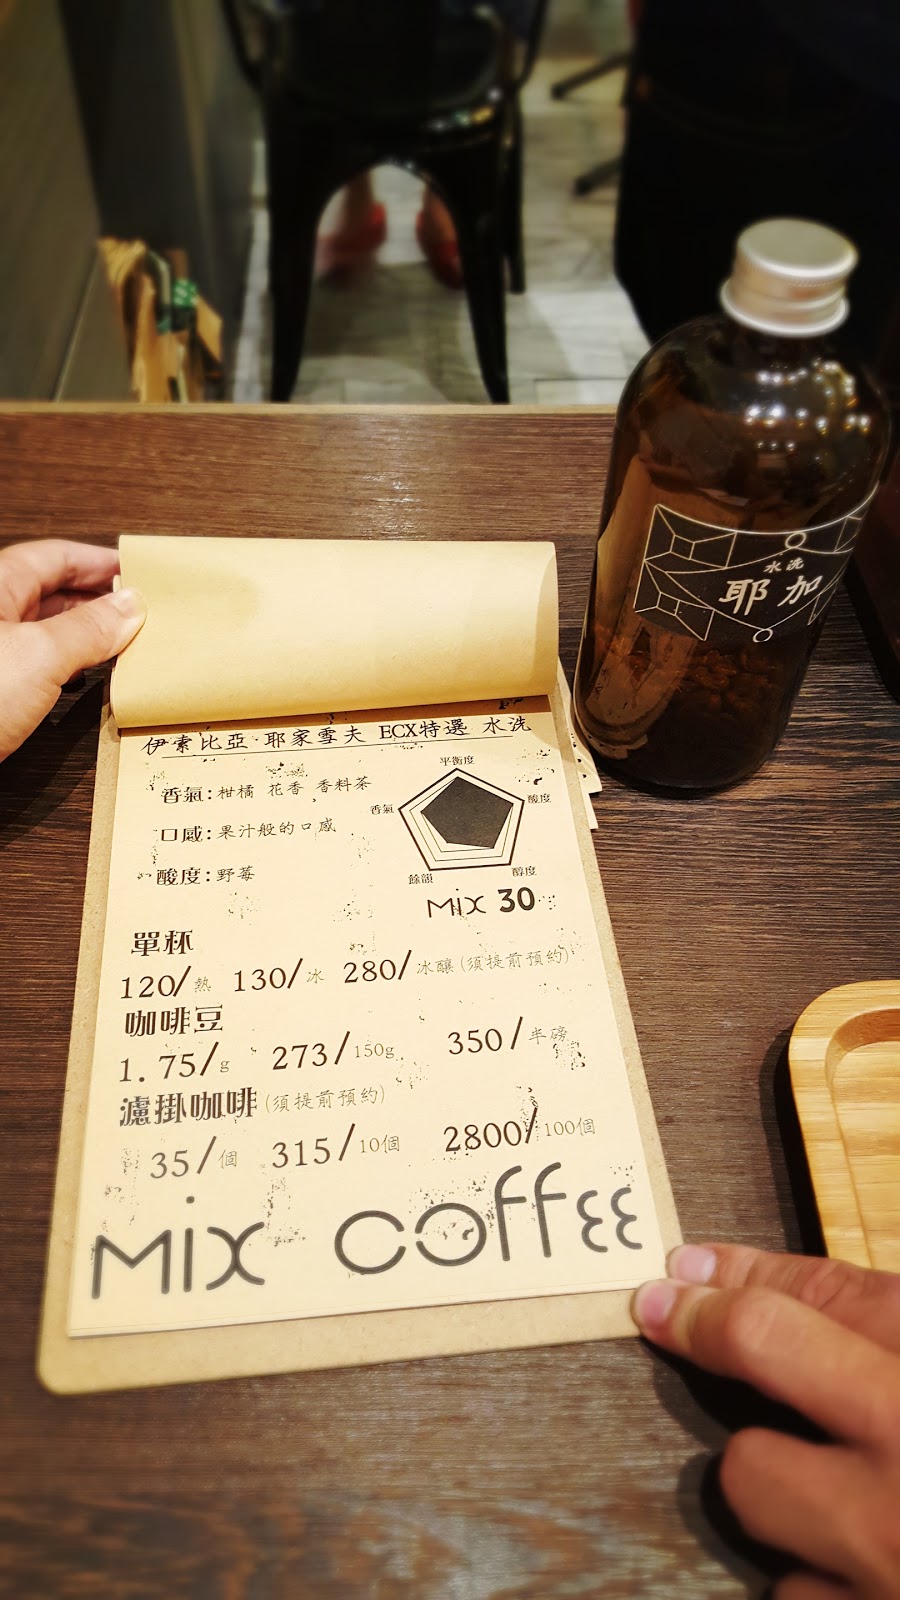 伊索比亞 耶家雪夫 ECX特選 水洗
香氣:柑橘 花香 香料茶
口感:果汁般的口感
酸度:野莓
平衡度
香氣
酸度
餘韻
醇度
Mix 30
單杯
120/熱 130/冰 280/冰釀(須提前預約)
咖啡豆
1.75/g 273/150g 350/半磅
濾掛咖啡(須提前預約)
35/個 315/10個 2800/100個
Mix COffEE
水洗
耶加